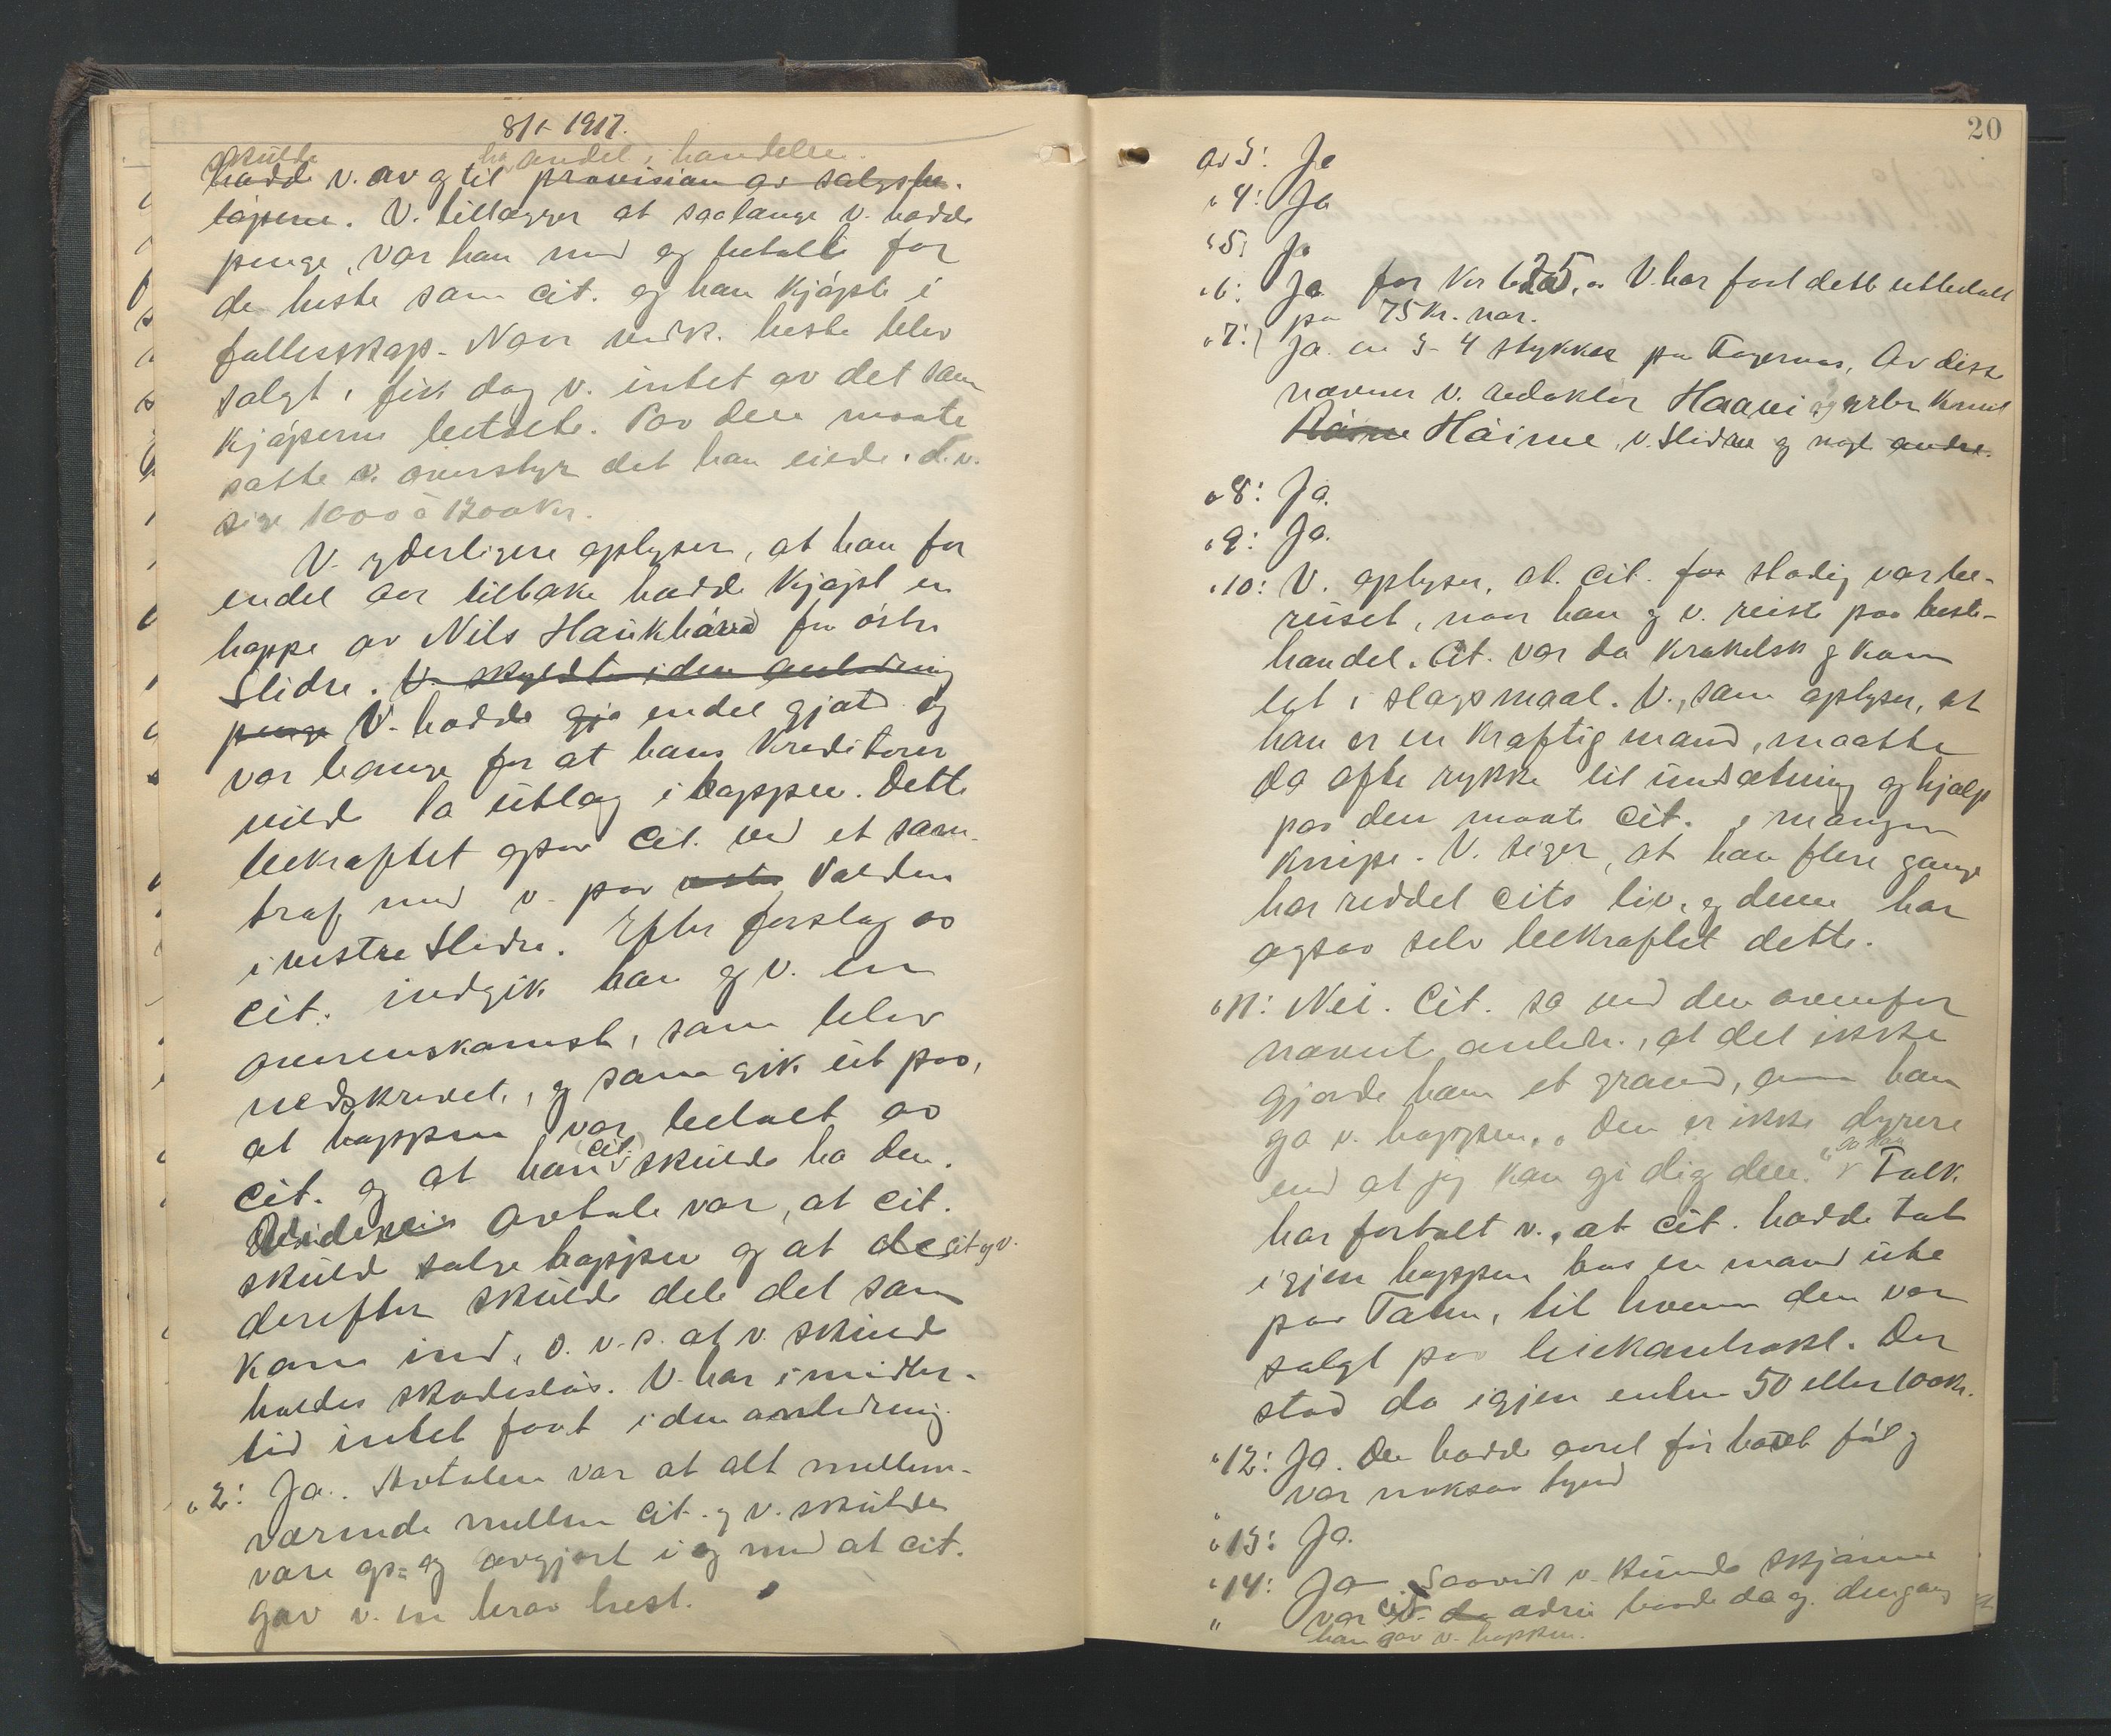 8/1- 1917.
skulde ha andel i handelen.
hadde v. av og til provision av salgsbe-
løpene. V. tillægger at saalænge v. hadde
penge, var han med og betalte for
de heste som cit. og han kjøpte i
fællesskap. Naar vedk. heste blev
solgt, fik dog v. intet av det som
kjøperne betalte. Paa den maate
satte v. overstyr det han eiede, d.v.
sige 1000 à 1200 kr.
V. yderligere oplyser, at han for
endel aar tilbake hadde kjøpt en
hoppe av Nils Haukhåvd fra östre
Slidre. V. skyldte i den anledning
penge V. hadde gja endel gjæld og
var bange for at hans kreditorer
vilde ta utlæg i hoppen. Dette
bekræftet ogsaa cit. ved et sam-
træf med v. paa Valden
i vestre Slidre. Efter forslag av
cit. indgik han og v. en
overenskomst, som blev
nedskrevet, og som gik ut paa,
at hoppen var betalt av
cit. og at han (cit.) skulde ha den.
Avtale var, at cit.
skuld sælge hoppen og at de cit og v.
derefter skulde dele det som
kom ind, d.v.s. at v. skuld
holdes skadesløs. V. har imidler-
tid intet faat i den anledning.
" 2: Ja. Avtalen var at alt mellem-
værende mellem cit. og v. skulde
være op- og avgjort i og med at cit.
gav v. en brav hest.
20
Av 3: Ja
" 4: Ja
" 5: Ja
" 6: Ja for kr 625, V. har faat dette utbetalt
paa 75 kr. nær.
" 7: Ja en 3-4 stykker paa Fagernes, Av disse
nævner v. redaktör Haavi og Knut
Håime, v. Slidre og nogle andre.
" 8: Ja.
" 9: Ja.
" 10: V. oplyser, at cit. for stadig var be-
ruset, naar han og v. reiste paa heste-
handel. Cit. var da krakelsk og kom
let i slagsmaal. V., som oplyser, at
han er en kraftig mand, maatte
da ofte rykke til undsætning og hjalp
paa den maate cit. i mangen
knipe. V. siger, at han flere gange
har reddet cits liv, og denne har
ogsaa selv bekræftet dette.
" 11: Nei. Cit. sa ved den ovenfor
nævnte anledn., at det ikke
gjorde ham et grand, om han
ga v. hoppen, " Den er ikke dyrere
end at jeg kan gi dig den." sa han Folk
har fortalt v., at cit. hadde tat
igjen hoppen hos en mand ute
paa Toten, til hvem den var
solgt paa leiekontrakt. Der
stod da igjen enten 50 eller 100 kr.
" 12: Ja. Den hadde avret før havt føl og
var noksaa tynd
" 13: Ja.
" 14: Ja Saavidt v. kunde skjønne
" var cit. da ædru baade da og dengang
han gav v. hoppen.